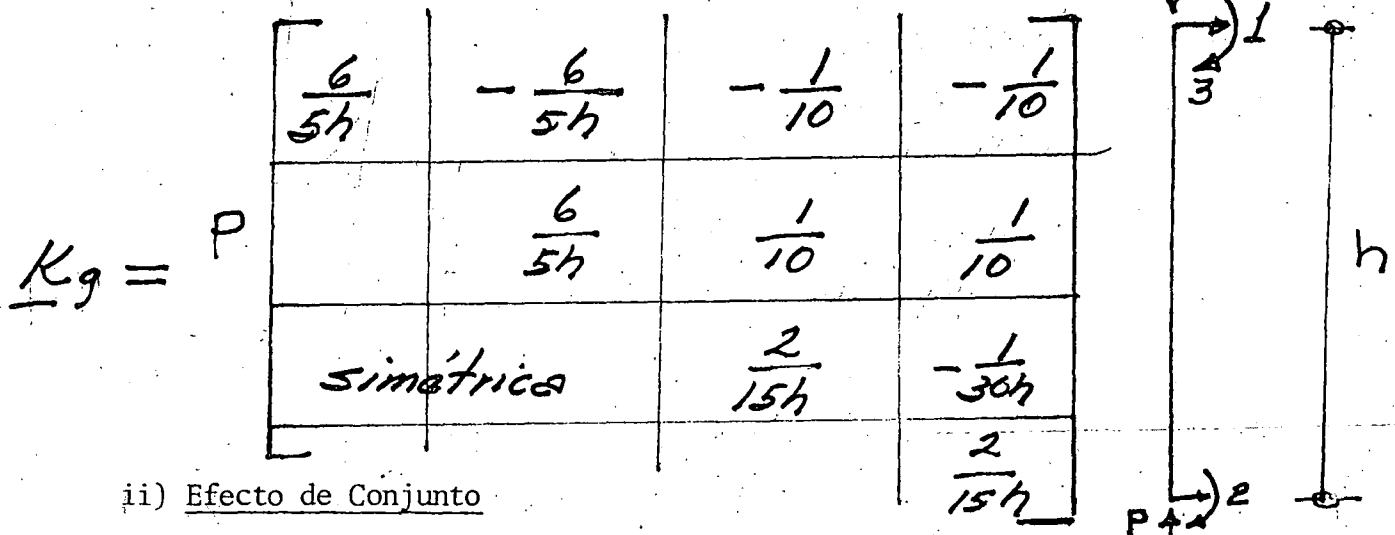 6/5h - 6/5h - 1/10 - 1/10
6/5h 1/10 1/10
Kg = P
simétrica 2/15h - 1/30h
2/15h
1
3
h
P 2
ii) Efecto de Conjunto